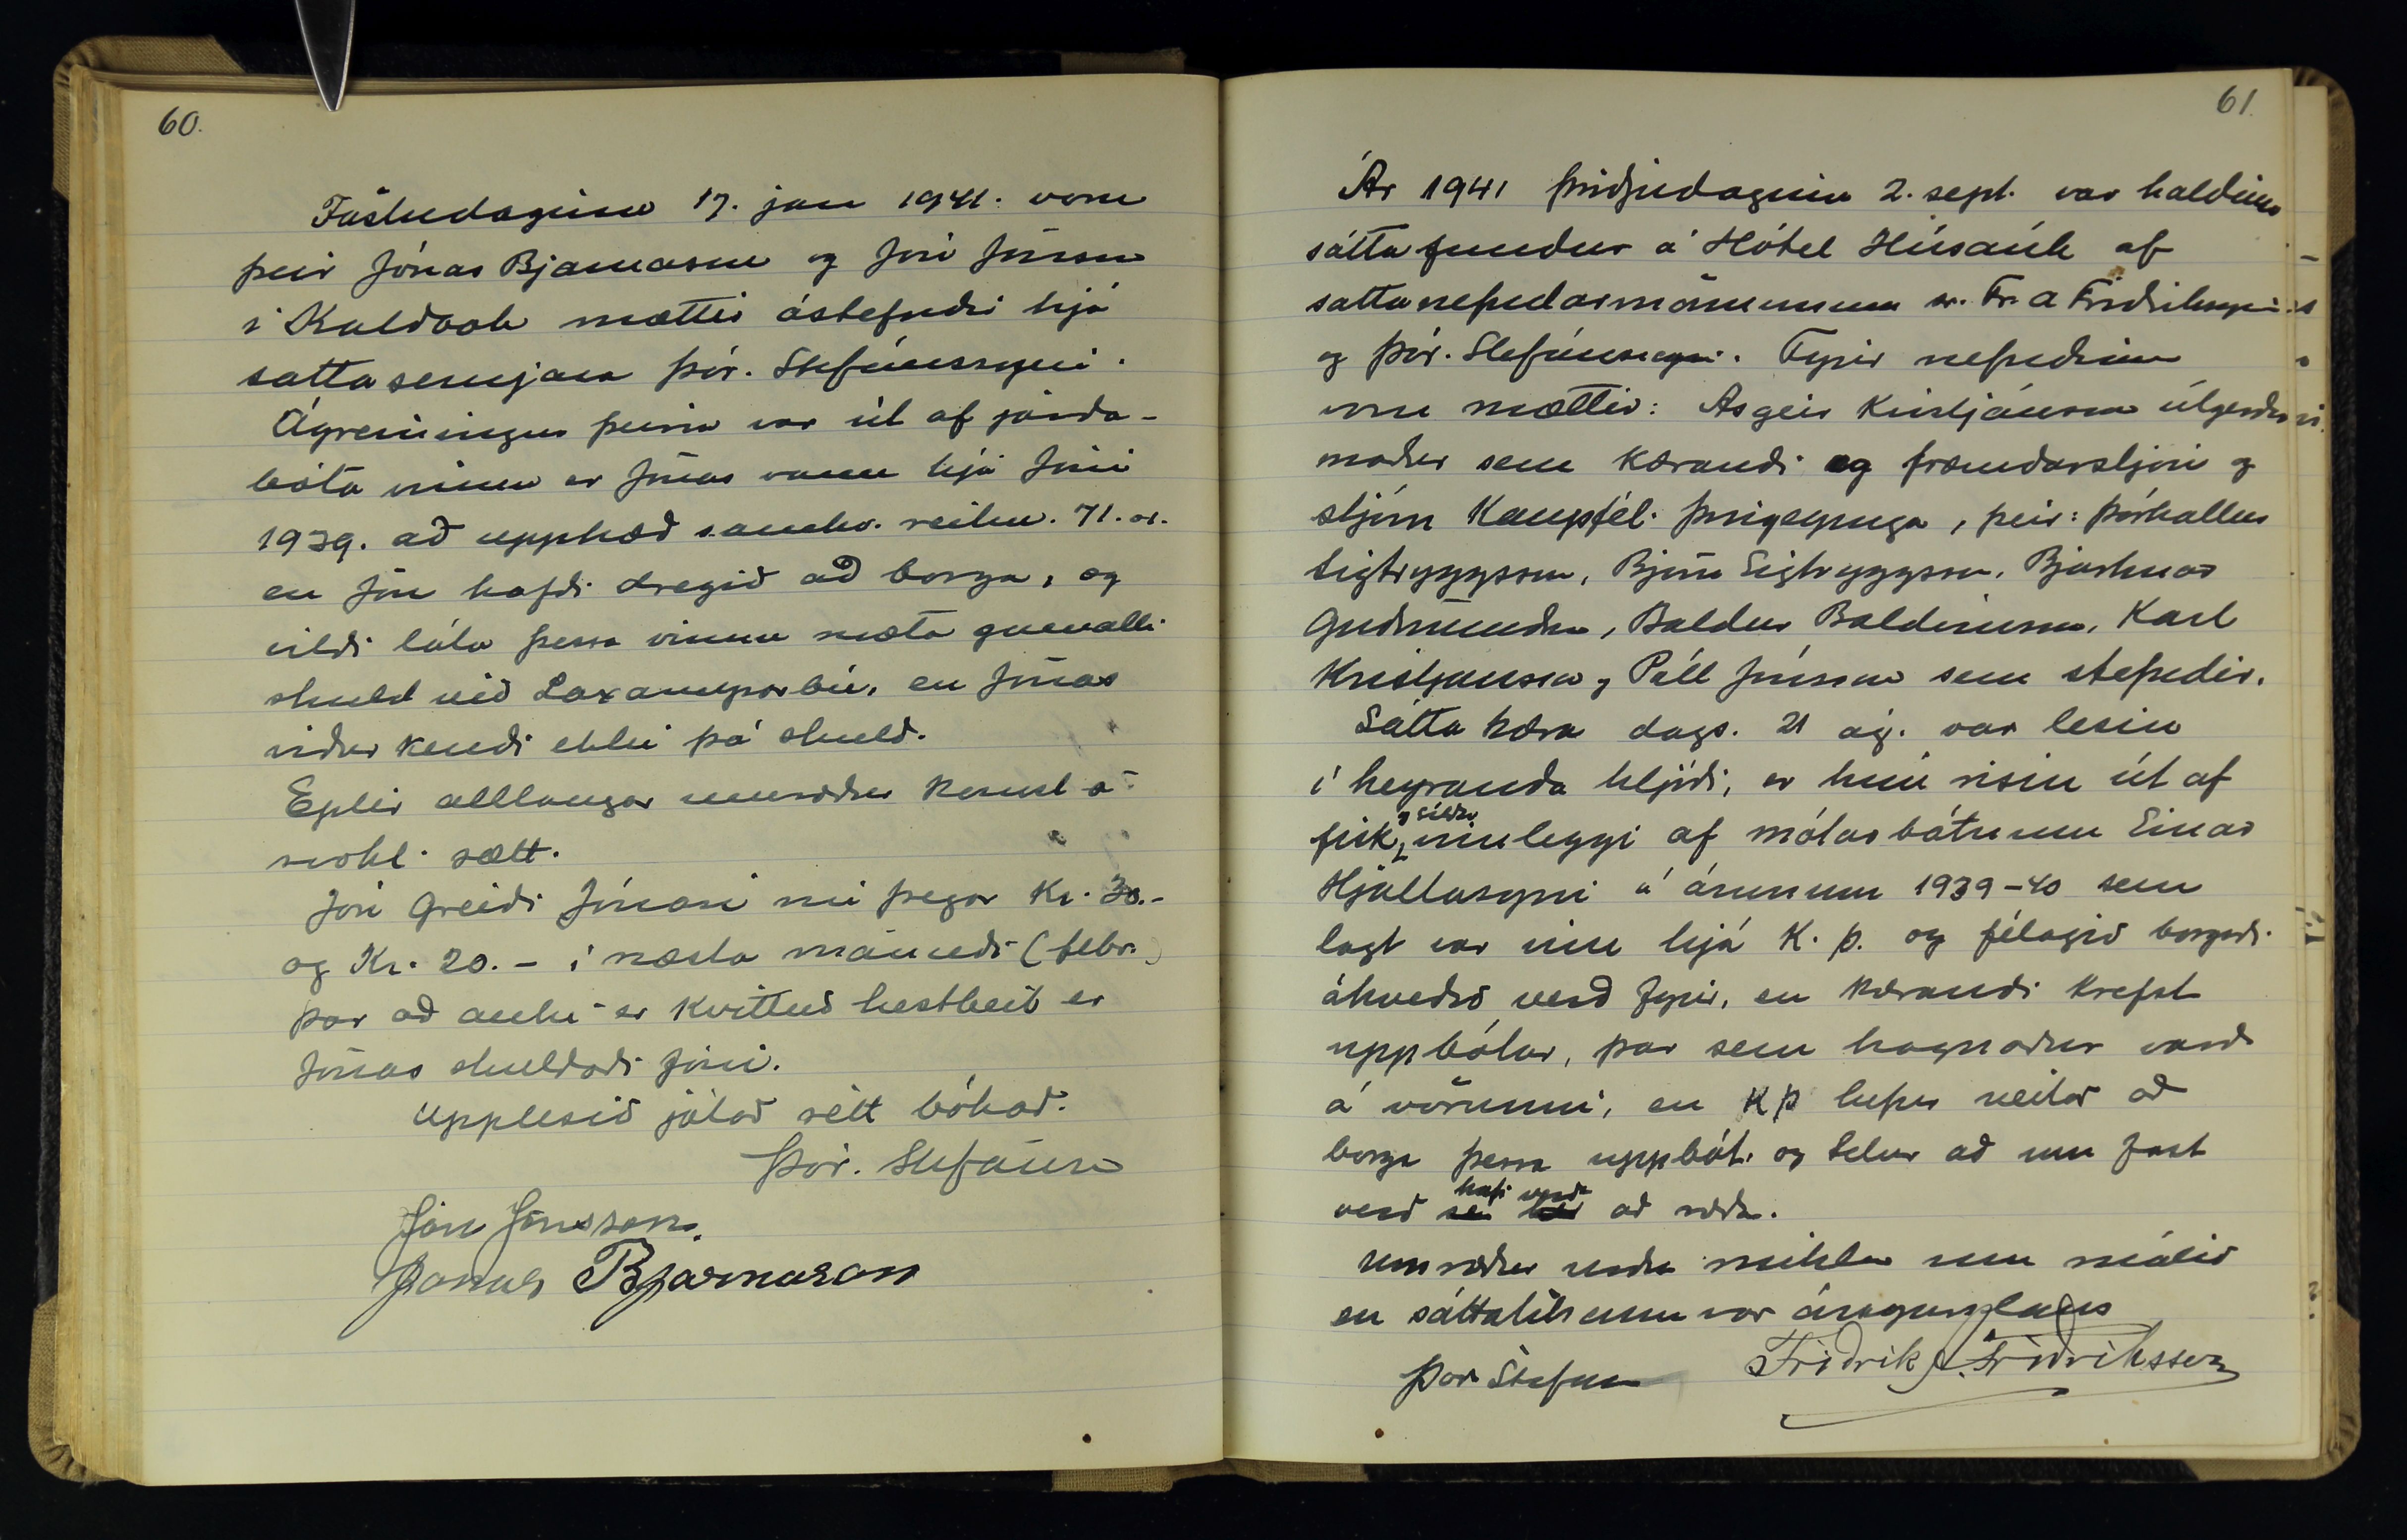 60.
Föstudaginn 17. jan 1941. voru
þeir Jónas Bjarnason og Jón Jónsson
í Kaldbak mættir ástefndir hjá
sattasemjara Þór. Stefánssyni.
Ágreiningur þeirra var út af jarða-
bóta vinnu er Jónas vann hjá Jóni
1939. að upphæð samkv. reikn. 71.00.
en Jón hafði dregið að borga, og
vildi láta þessa vinnu mæta gamalli
skuld við Laxamýrarbú, en Jónas
viður kendi ekki þá skuld.
Eptir alllangar umræður komst á
svohl. sætt.
Jón Greiði Jónasi nú þegar Kr. 30.-
og Kr. 20.- í næsta mánuði (febr.)
þar að auki er kvittuð hestbeit er
Jónas skuldaði Jóni.
Upplesið játað rétt bókað.
Þór. Stefánss
Jón Jónsson.
Jónas Bjarnason
61.
Ár 1941 þriðjudaginn 2. sept. var haldinn
sáttafundur á Hótel Húsavík af
sattanefndarmönnunum sr. Fr. A Friðrikssyni
og Þór. Stefánssyni. Fyrir nefndinni
voru mættir: Asgeir Kristjánsson útgerðar
maður sem kærandi og framkvæmdarstjóri og
stjórn Kaupfél. Þingeyinga, þeir: Þórhallur
Sigtryggsson, Björn Sigtryggsson, Bjartmar
Guðmundsson, Baldur Baldvinsson, Karl
Kristjansson, Páll Jónsson sem stefndir.
Sátta kæra dags. 21 ág. var lesin
í heyranda hljóði, er hún risin út af
fisk og síldar innleggi af mótorbátnum Einar
Hjaltasyni á árunum 1939-40 sem
lagt var inn hjá K.Þ. og félagið borgaði
ákveðið verð fyrir, en kærandi krefst
uppbótar, þar sem hagnaður varð
á vörunni, en KÞ hefur neitað að
borga þessa uppbót og telur að um fast
verð hafi verið að ræða.
Umræður urðu miklar um málið
en sáttatilraun var árangurslaus
Þór Stefánss Friðrik A. Friðriksson